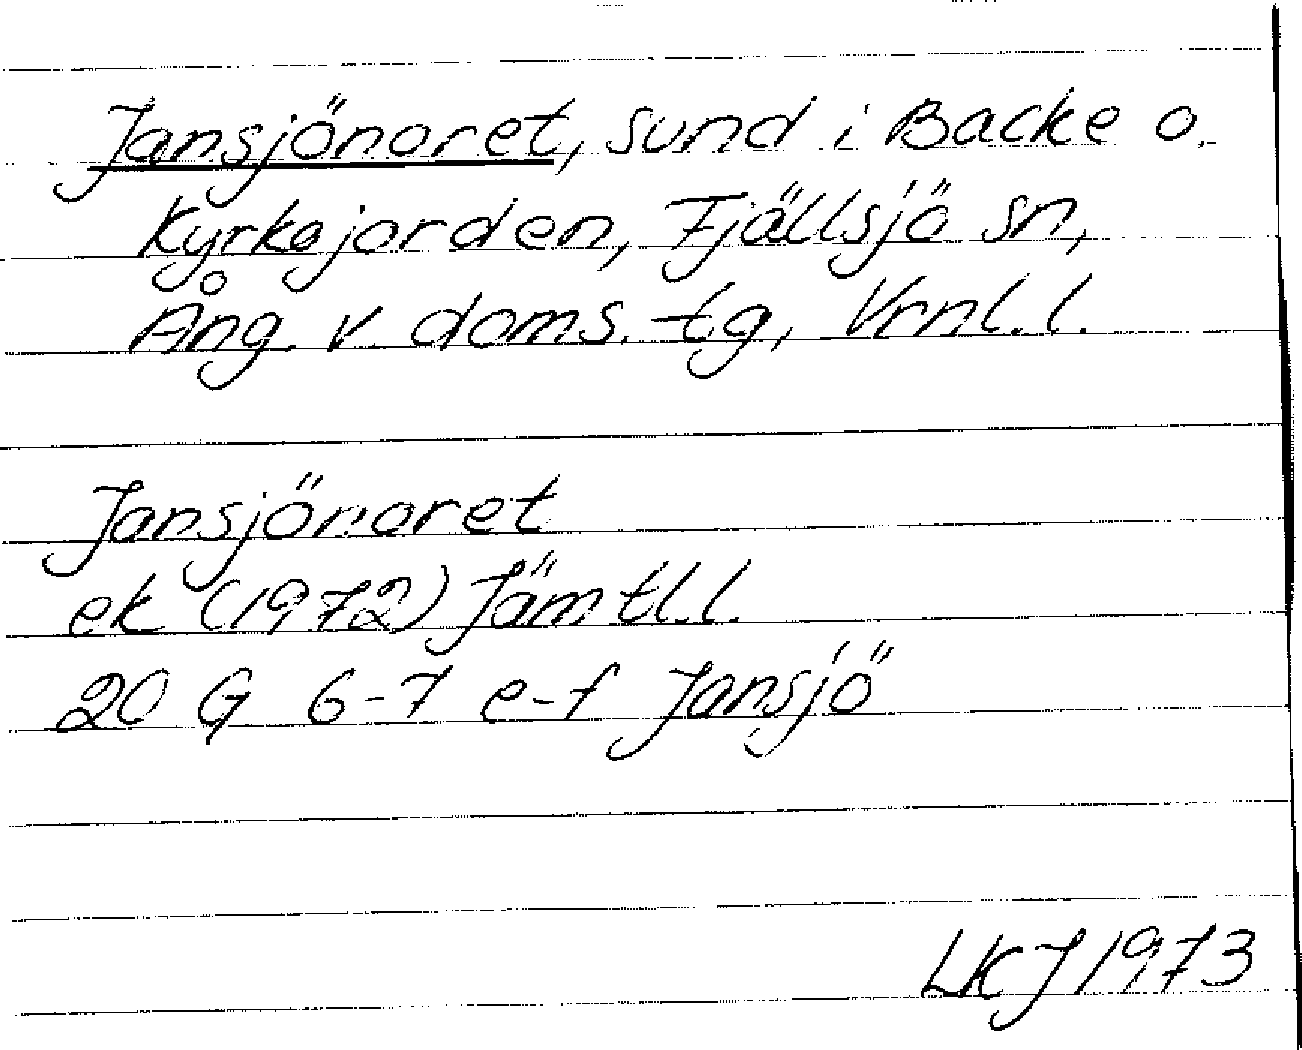 Jansjönoret, sund i Backe o.
Kyrkojorden, Fjällsjö sn,
Ång. v. doms. tg, Vrnl. l.
Jansjönoret
ek (1972) Jämtl. l.
20 G 6-7 e-f Jansjö
LKJ 1973